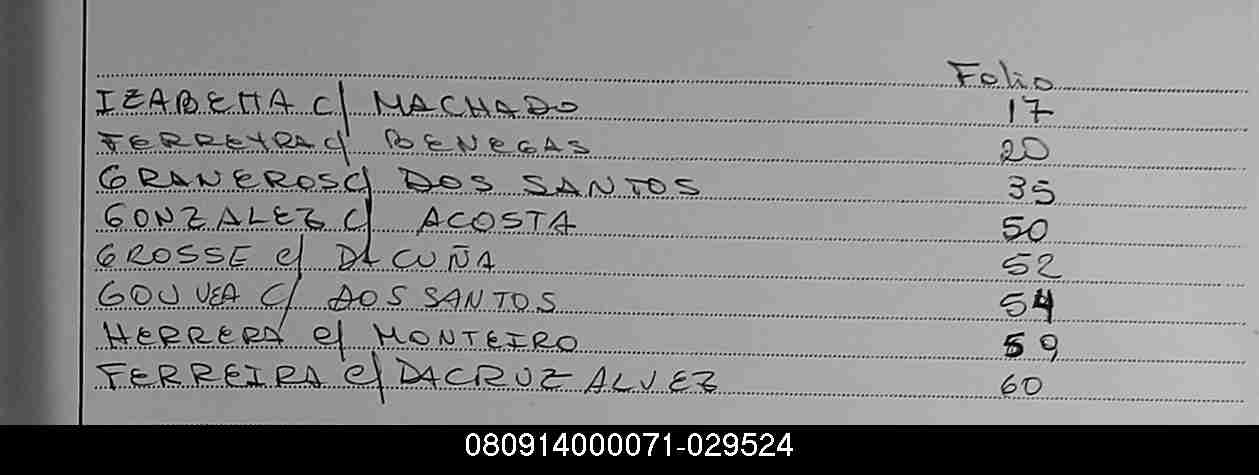 Folio
IZABETTA c/ MACHADO 17
FERREYRA c/ BENEGAS 20
GRANEROS c/ DOS SANTOS 35
GONZALEZ c/ ACOSTA 50
GROSSE c/ DA CUÑA 52
GOUVEA c/ DOS SANTOS 54
HERRERA c/ MONTEIRO 59
FERREIRA c/ DACRUZ ALVEZ 60
080914000071-029524